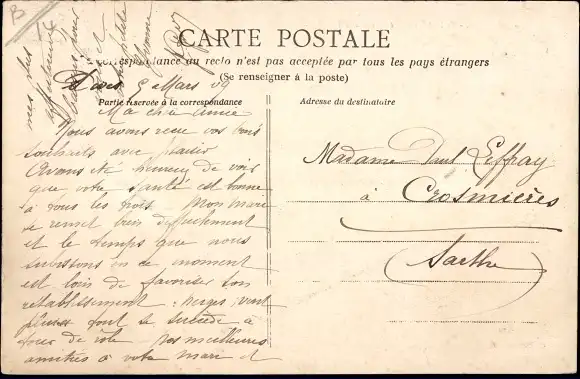 B
14
CARTE POSTALE
La correspondance au recto n'est pas acceptée par tous les pays étrangers
(Se renseigner à la poste)
5 Mars 09
Partie réservée à la correspondance
Adresse du destinataire
Ma chère amie
Nous avons reçu vos bons
souhaits avec plaisir
avons été heureux de voir
que votre santé est bonne
à tous les trois. Mon mari
se remet très difficilement
et le temps que nous
subissons en ce moment
est loin de favoriser son
rétablissement : neiges, vent
pluies font se succède à
tour de rôle Nos meilleures
amitiés à votre mari et
Madame Paul Leffray
à Crosmières
(Sarthe)